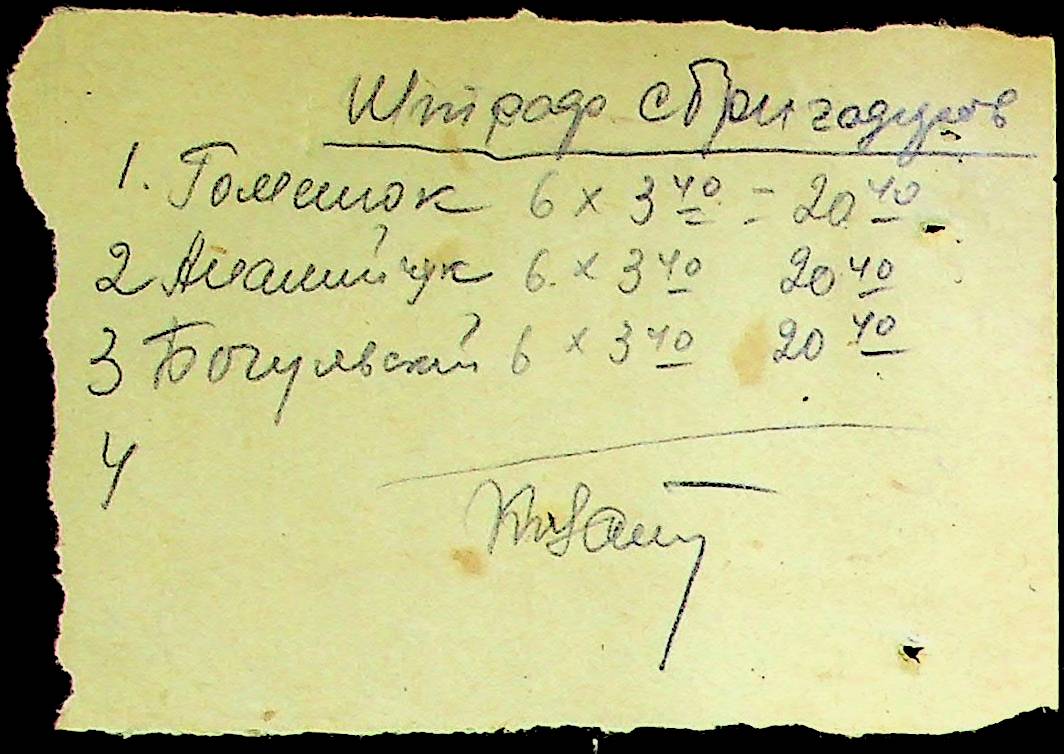 Штраф с бригадиров
1. Гоменюк 6 х 3 40 = 20 40
2 Ананийчук 6 х 3 40 20 40
3 Богуявский 6 х 3 40 20 40
4